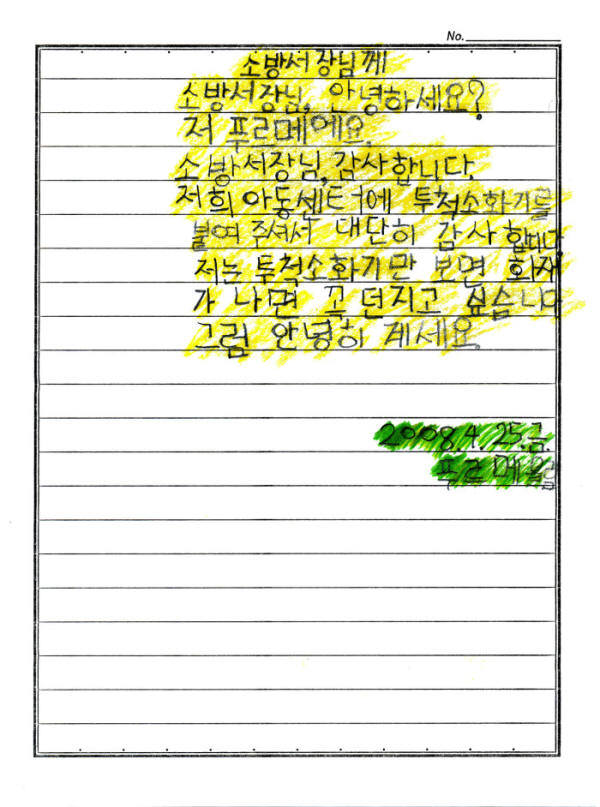 No.
소방서장님께
소방서장님, 안녕하세요?
저 푸르메에요.
소방서장님, 감사합니다.
저희 아동센터에 투척소화기를
붙여 주셔서 대단히 감사합니다
저는 투척소화기만 보면 화재
가 나면 꼭 던지고 싶습니다
그럼 안녕히 계세요.
2008.4.25.금.
푸르메올림